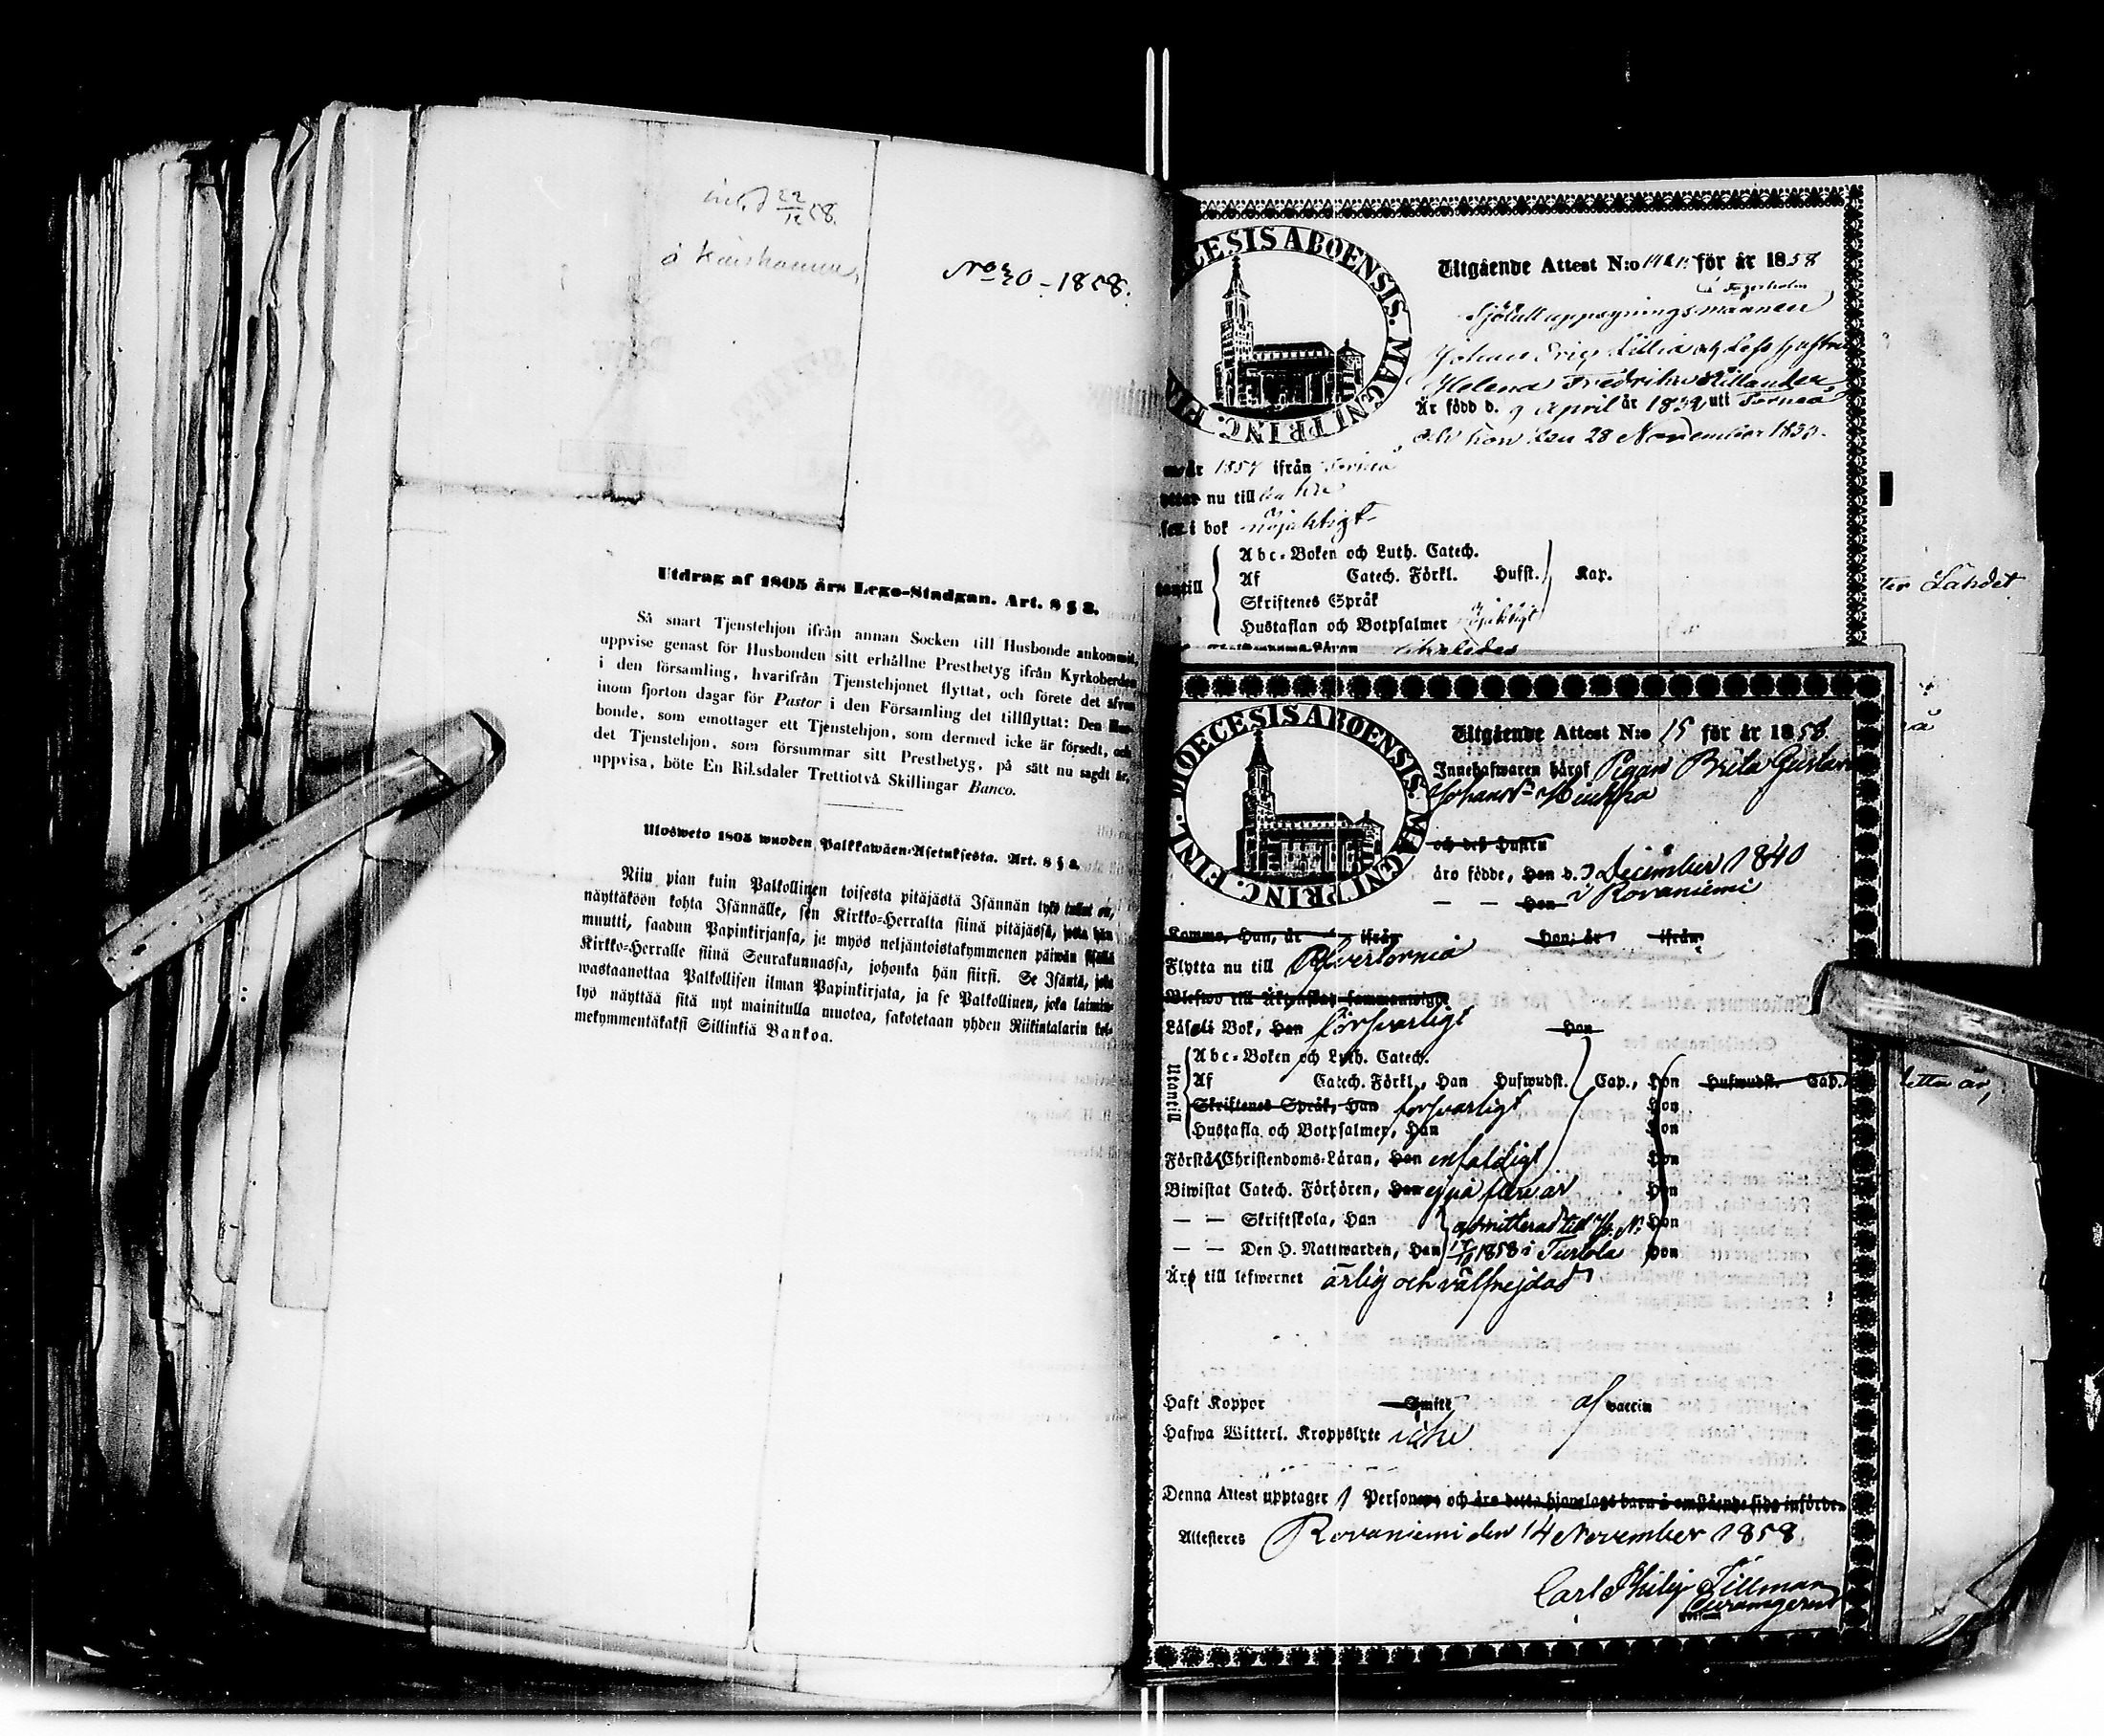 inl. d 22/12 58.
No 30 - 1858.
Utdrag af 1805 års Lego-Stadgan. Art. 8 § 8.
Så snart Tjenstehjon ifrån annan Socken till Husbonde ankommit,
uppvise genast för Husbonden sitt erhållne Prestbetyg ifrån Kyrkoherden
i den församling, hvarifrån Tjenstehjonet flyttat, och förete det äfven
inom fjorton dagar för Pastor i den Församling det tillflyttat: Den Hus-
bonde, som emottager ett Tjenstehjon, som dermed icke är försedt, och
det Tjenstehjon, som försummar sitt Prestbetyg, på sätt nu sagdt är,
uppvisa, böte En Riksdaler Trettiotvå Skillingar Banco.
Ulosweto 1805 wuoden Palkkawäen-Asetuksesta. Art. 8 § 8.
Niin pian kuin Palkollinen toisesta pitäjästä Isännän tykö tullut on,
näyttäköön kohta Isännälle, sen Kirkko-Herralta siinä pitäjässä, josta hän
muutti, saadun Papinkirjansa, ja myös neljäntoistakymmenen päiwän sisällä
Kirkko-Herralle siinä Seurakunnassa, johonka hän siirsi. Se Isäntä, joka
wastaanottaa Palkollisen ilman Papinkirjata, ja se Palkollinen, joka laimin-
lyö näyttää sitä nyt mainitulla muotoa, sakotetaan yhden Riikintalarin kol-
mekymmentäkaksi Sillinkiä Bankoa.
CESIS ABOENSIS. MAGNI PRINC. FIN
Utgående Attest N:o för år 1858
Sjötulluppsyningsmannen
Johan Eric Lillia och dess hustru
Helena Fredrika
Är född d. 9 April år 1832 uti Torneå
och hon den 28 November 1833.
år 1857 ifrån Torneå
nu till
i bok nöjaktigt
Abc-Boken och Luth. Catech.
Af Catech. Förkl. Hufst. Kap.
Skriftenes Språk
Hustaflan och Botpsalmer nöjaktigt
ter Landet
DIOECESIS ABOENSIS. MAGNI PRINC. FINL.
Utgående Attest N:o 15 för år 1858
Innehafwaren häraf Pigan Brita Gustava
Johansdr
och deß hustru
äro födde, Han d. 9 December 1840
— — Hon i Rovaniemi
Kommo, Han, år ifrån Hon, år ifrån
Flytta nu till Öfvertorneå
Blefwo till Äktenskap sammanwigde
Läsa i Bok, Han försvarligt Hon
Utantill
Abc-Boken och Luth. Catech.
Af Catech. Förkl., Han Hufwudst. Cap., Hon Hufwudst. Cap.
Skriftenes Språk, Han försvarligt Hon
Hustafla och Botpsalmer, Han Hon
Förstå Christendoms-Läran, Han enfaldigt Hon
Biwistat Catech. Förhören, Han ej på flere år Hon
— — Skriftskola, Han admitterad till H. N. Hon
— — Den H. Nattwarden, Han 1858 i Turtola Hon
Äro till lefwernet ärlig och välfrejdad
Haft Koppor Smitt af vaccin
Hafwa Witterl. Kroppslyte icke
Denna Attest upptager 1 Personer och äro detta hjonelags barn å omstående sida införde
Attesteres Rovaniemi den 14 November 1858
Carl Philip Tillman